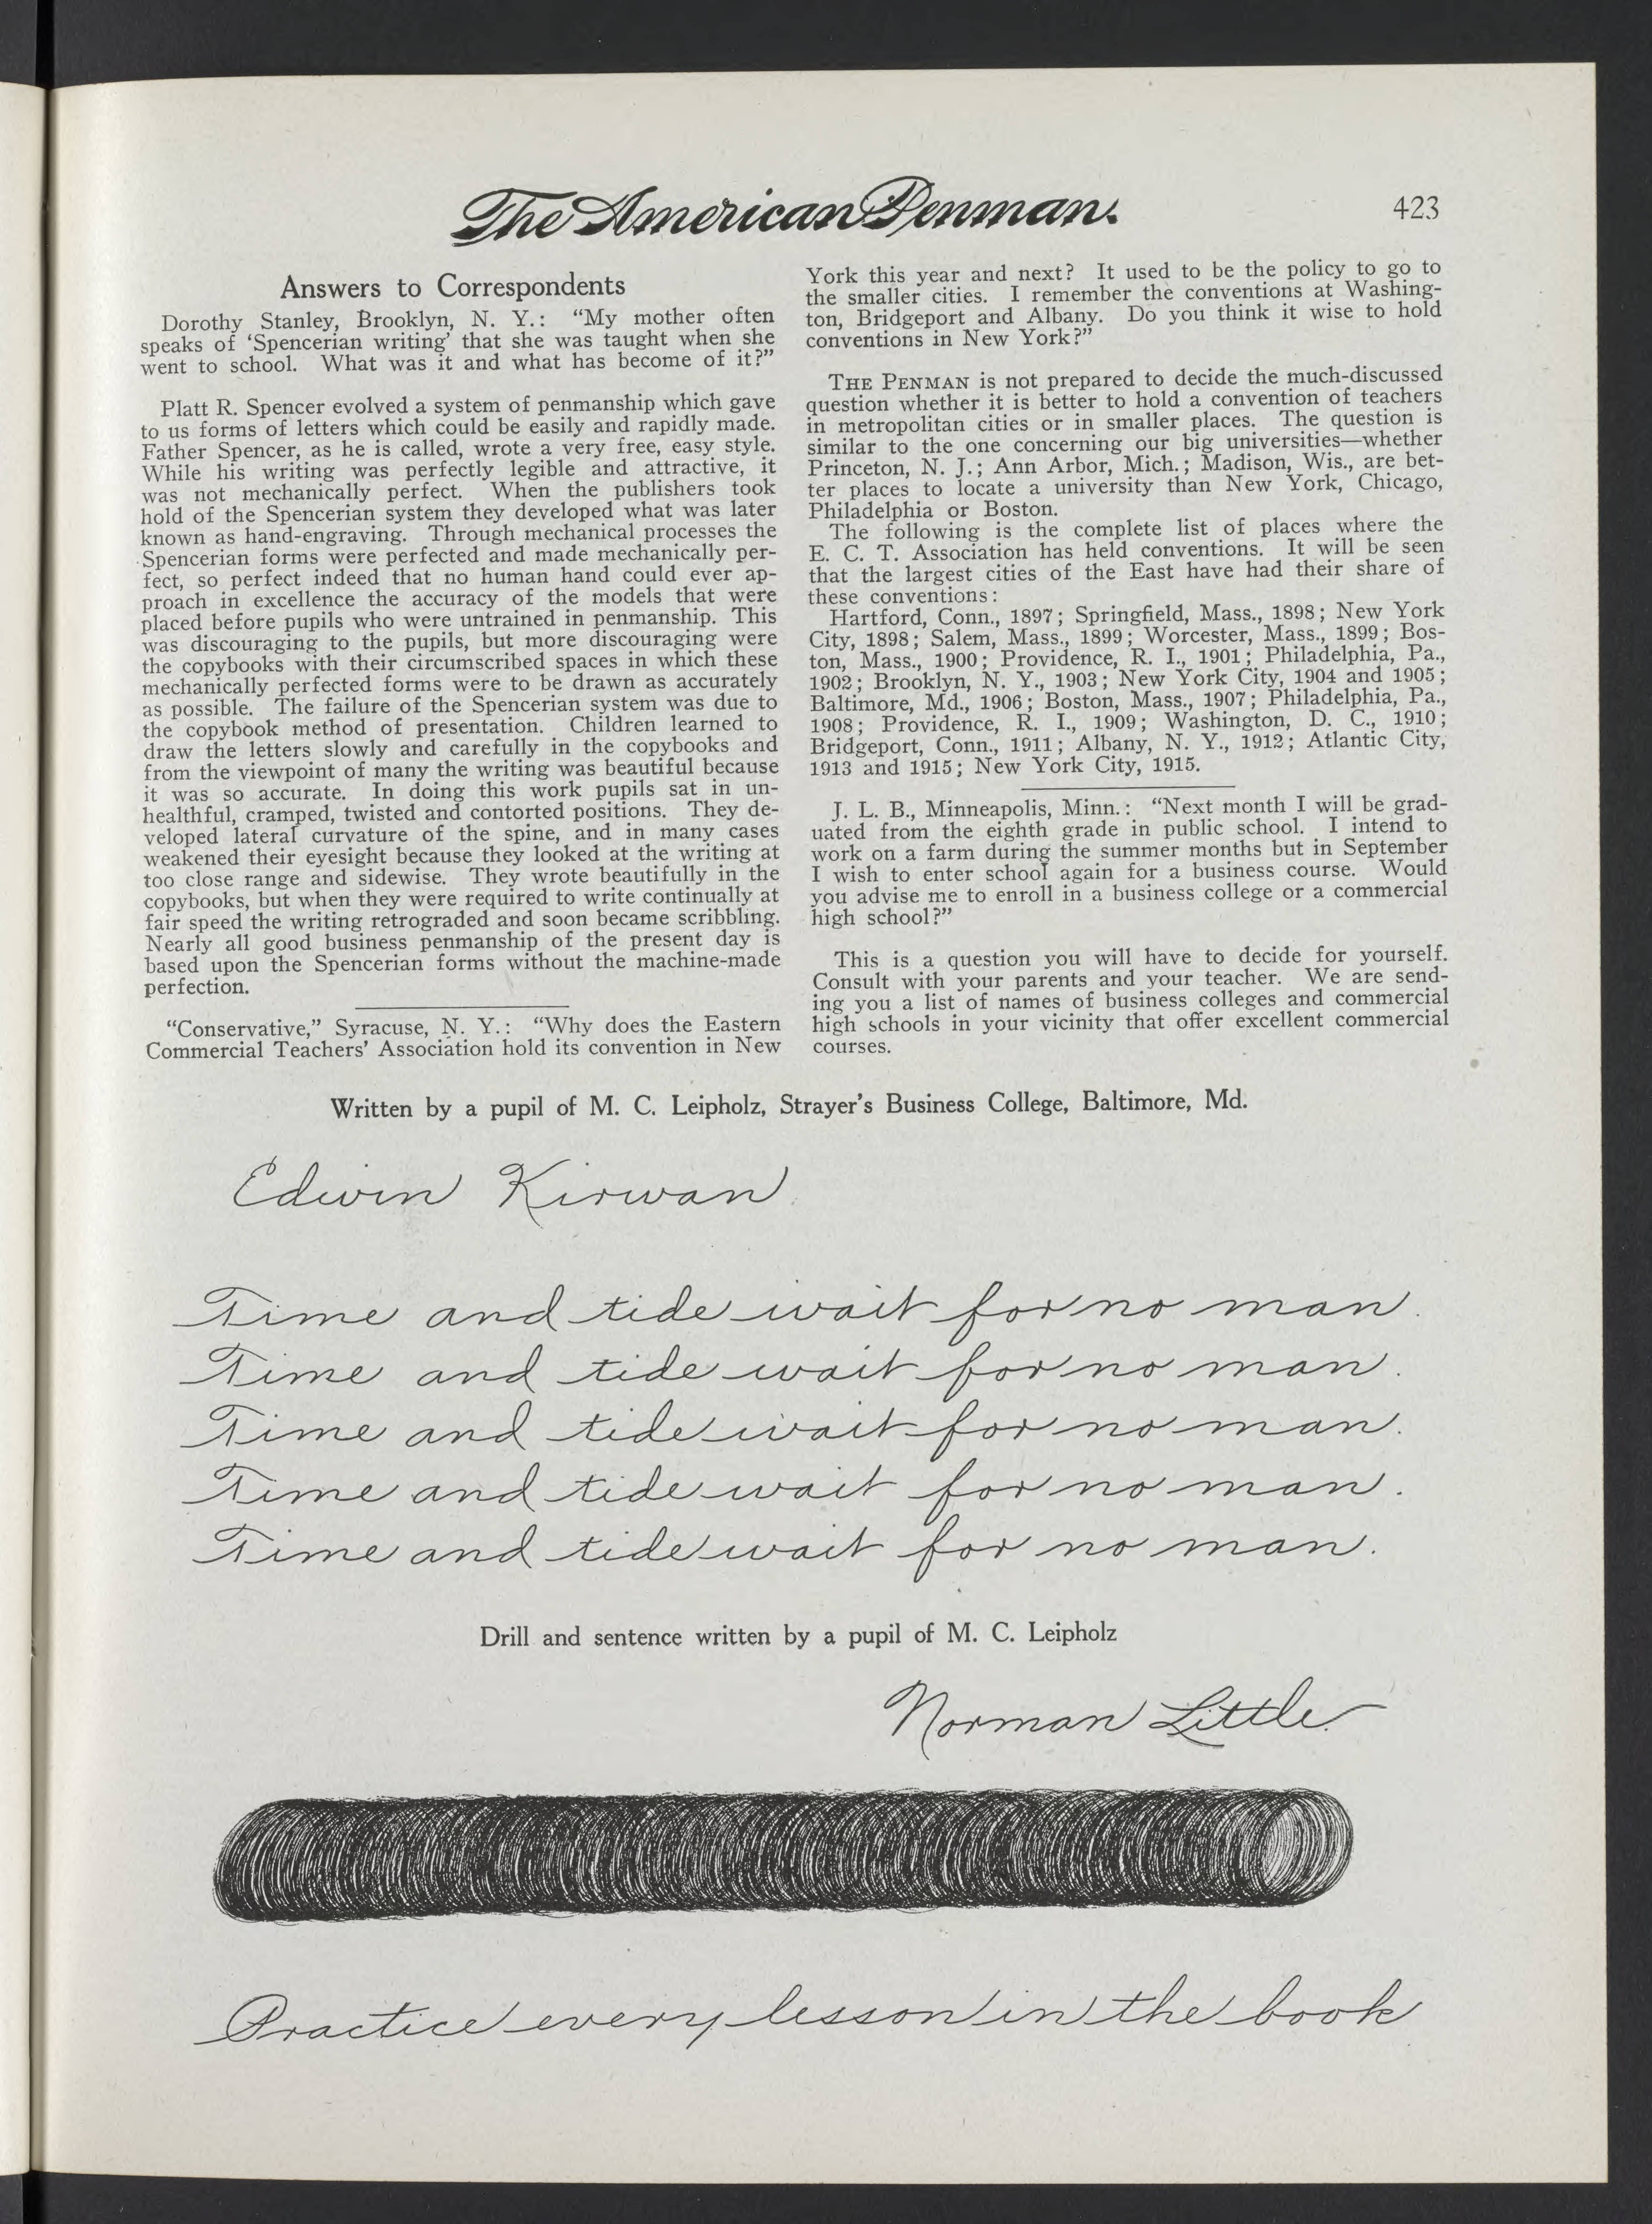 The American Penman.
423
Answers to Correspondents
Dorothy Stanley, Brooklyn, N. Y.: “My mother often
speaks of ‘Spencerian writing’ that she was taught when she
went to school. What was it and what has become of it?”
Platt R. Spencer evolved a system of penmanship which gave
to us forms of letters which could be easily and rapidly made.
Father Spencer, as he is called, wrote a very free, easy style.
While his writing was perfectly legible and attractive, it
was not mechanically perfect. When the publishers took
hold of the Spencerian system they developed what was later
known as hand-engraving. Through mechanical processes the
Spencerian forms were perfected and made mechanically per-
fect, so perfect indeed that no human hand could ever ap-
proach in excellence the accuracy of the models that were
placed before pupils who were untrained in penmanship. This
was discouraging to the pupils, but more discouraging were
the copybooks with their circumscribed spaces in which these
mechanically perfected forms were to be drawn as accurately
as possible. The failure of the Spencerian system was due to
the copybook method of presentation. Children learned to
draw the letters slowly and carefully in the copybooks and
from the viewpoint of many the writing was beautiful because
it was so accurate. In doing this work pupils sat in un-
healthful, cramped, twisted and contorted positions. They de-
veloped lateral curvature of the spine, and in many cases
weakened their eyesight because they looked at the writing at
too close range and sidewise. They wrote beautifully in the
copybooks, but when they were required to write continually at
fair speed the writing retrograded and soon became scribbling.
Nearly all good business penmanship of the present day is
based upon the Spencerian forms without the machine-made
perfection.
“Conservative,” Syracuse, N. Y.: “Why does the Eastern
Commercial Teachers’ Association hold its convention in New
York this year and next? It used to be the policy to go to
the smaller cities. I remember the conventions at Washing-
ton, Bridgeport and Albany. Do you think it wise to hold
conventions in New York?”
THE PENMAN is not prepared to decide the much-discussed
question whether it is better to hold a convention of teachers
in metropolitan cities or in smaller places. The question is
similar to the one concerning our big universities—whether
Princeton, N. J.; Ann Arbor, Mich.; Madison, Wis., are bet-
ter places to locate a university than New York, Chicago,
Philadelphia or Boston.
The following is the complete list of places where the
E. C. T. Association has held conventions. It will be seen
that the largest cities of the East have had their share of
these conventions:
Hartford, Conn., 1897; Springfield, Mass., 1898; New York
City, 1898; Salem, Mass., 1899; Worcester, Mass., 1899; Bos-
ton, Mass., 1900; Providence, R. I., 1901; Philadelphia, Pa.,
1902; Brooklyn, N. Y., 1903; New York City, 1904 and 1905;
Baltimore, Md., 1906; Boston, Mass., 1907; Philadelphia, Pa.,
1908; Providence, R. I., 1909; Washington, D. C., 1910;
Bridgeport, Conn., 1911; Albany, N. Y., 1912; Atlantic City,
1913 and 1915; New York City, 1915.
J. L. B., Minneapolis, Minn.: “Next month I will be grad-
uated from the eighth grade in public school. I intend to
work on a farm during the summer months but in September
I wish to enter school again for a business course. Would
you advise me to enroll in a business college or a commercial
high school?”
This is a question you will have to decide for yourself.
Consult with your parents and your teacher. We are send-
ing you a list of names of business colleges and commercial
high schools in your vicinity that offer excellent commercial
courses.
Written by a pupil of M. C. Leipholz, Strayer’s Business College, Baltimore, Md.
Edwin Kirwan
Time and tide wait for no man.
Time and tide wait for no man.
Time and tide wait for no man.
Time and tide wait for no man.
Time and tide wait for no man.
Drill and sentence written by a pupil of M. C. Leipholz
Norman Little.
Practice every lesson in the book